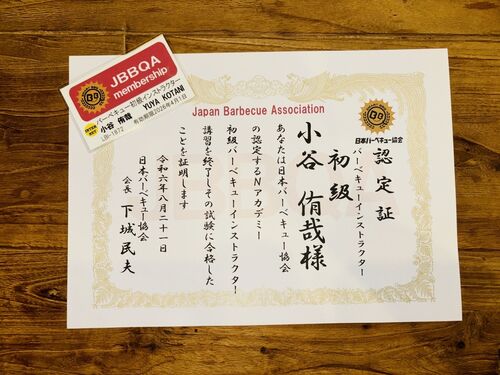 JBBQA
membership
バーベキュー初級インストラクター
小谷 侑哉 YUYA KOTANI
LBI-1872 有効期限2026年4月1日
Japan Barbecue Association
日本バーベキュー協会
認定証
バーベキューインストラクター
初級
小谷 侑哉様
あなたは日本バーベキュー協会
の認定するNアカデミー
初級バーベキューインストラクター
講習を終了しその試験に合格した
ことを証明します
令和六年八月二十一日
日本バーベキュー協会
会長 下城民夫